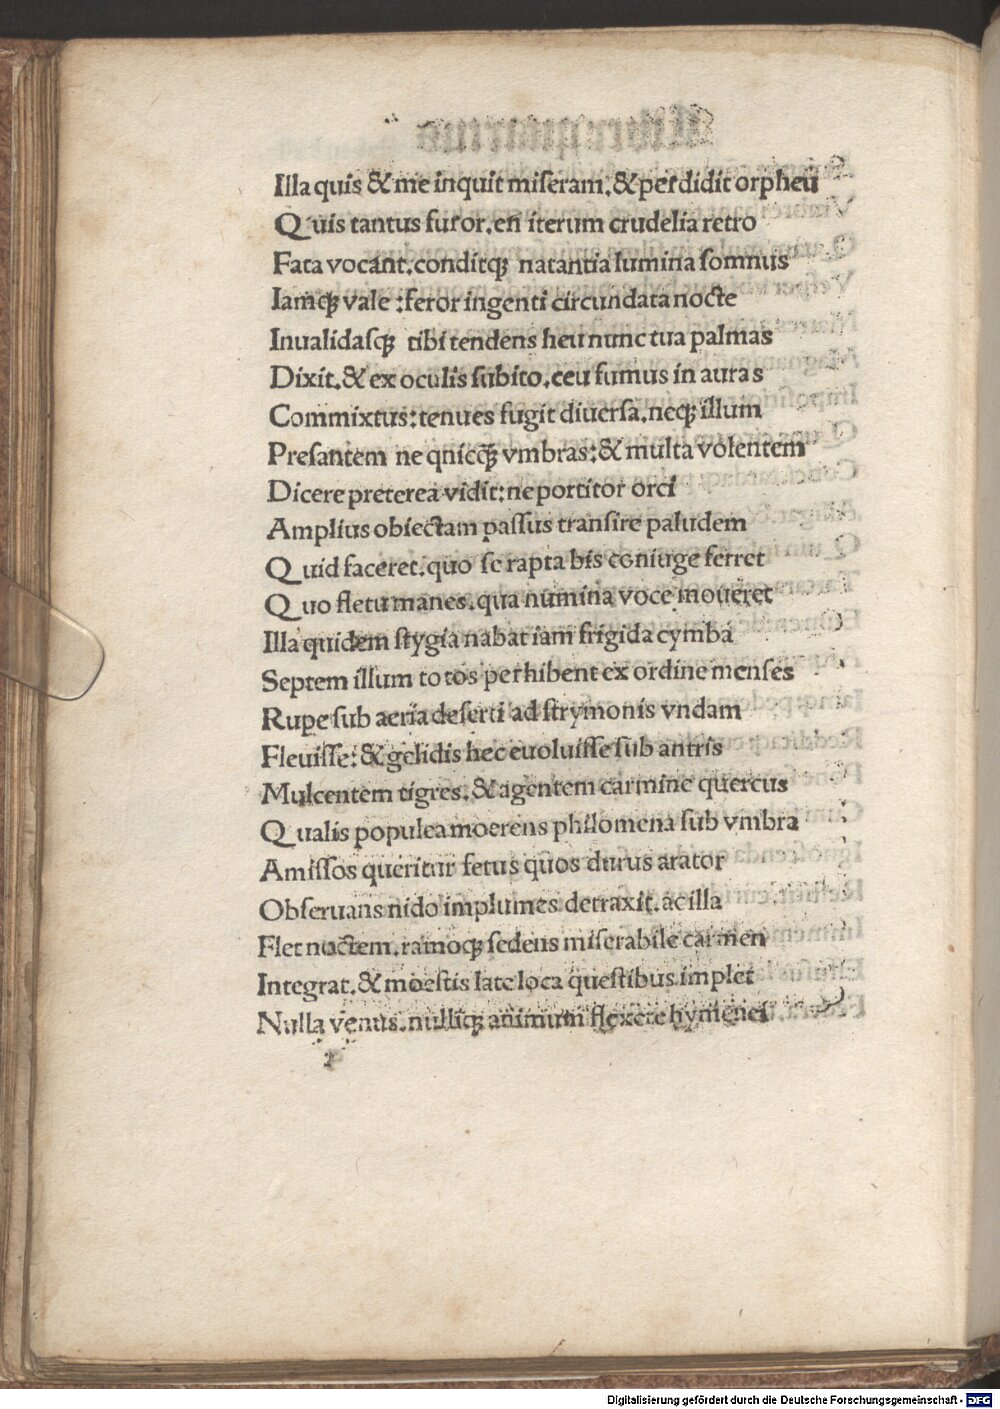 Illa quis & me inquit miseram.& perdidit orpheu
Quis tantus furor.en̄ iterum crudelia retro
Fata vocant.conditq; natantia lumina somnus
Iamq; vale :feror ingenti circundata nocte
Inualidasq; tibi tendens heu nunc tua palmas
Dixit.& ex oculis subito.ceu fumus in auras
Commixtus:tenues fugit diuersa.neq; illum
Presantem neqnicq̄; vmbras:& multa volentem
Dicere preterea vidit:ne portitor orci
Amplius obiectam passus transire paludem
Quid faceret.quo se rapta bis coniuge ferret
Quo fletu manes.qua numina voce moueret
Illa quidem stygia nabat iam frigida cymba
Septem illum totos perhibent ex ordine menses
Rupe sub aeria deserti ad strymonis vndam
Fleuisse:& gelidis hec euoluisse sub antris
Mulcentem tigres.& agentem carmine quercus
Qualis populea moerens philomena sub vmbra
Amissos queritur fetus quos durus arator
Obseruans nido implumes detraxit.ac illa
Flet noctem.ramoq; sedens miserabile carmen
Integrat.& moestis late loca questibus implet
Nulla venus.nulliq; animum flexere hymenei
Digitalisierung gefördert durch die Deutsche Forschungsgemeinschaft - DFG